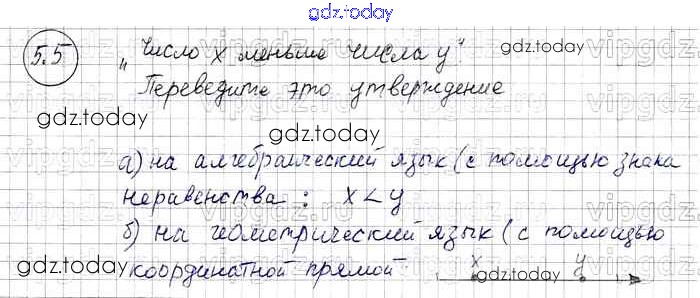 gdz.today
5.5 „Число x меньше числа y".
gdz.today
Переведите это утверждение
gdz.today
gdz.today
а) на алгебраический язык (с помощью знака
неравенства : x < y
б) на геометрический язык (с помощью
gdz.today координатной прямой
x y
gdz.today